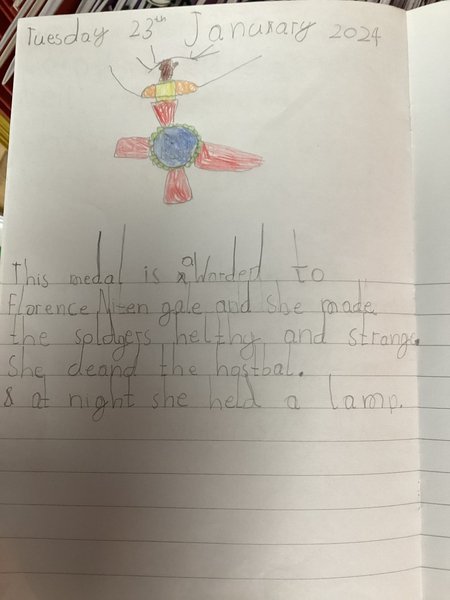 Tuesday 23th Janurary 2024
This medal is aWarded to
florence Niten gale and she made
the soldgers helthy and strange.
She cleand the hostbal.
& at night she held a lamp.